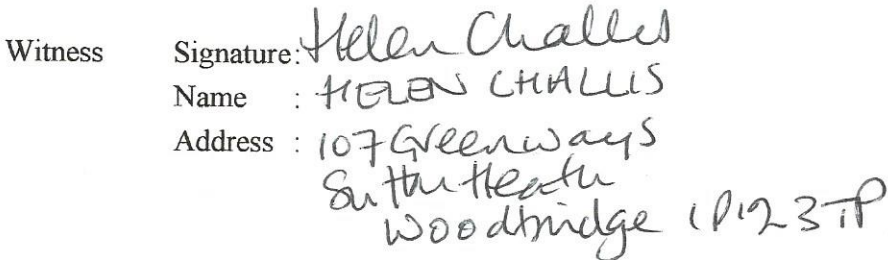 Witness Signature: Helen Challis
Name : HELEN CHALLIS
Address : 107 Greenways
Sutton Heath
Woodbridge IP12 3TP